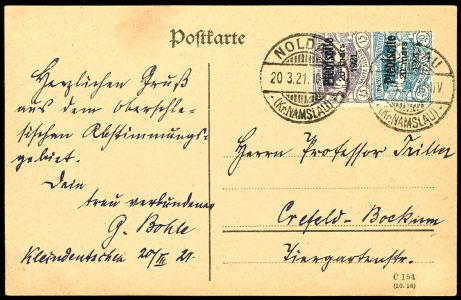 Postkarte
Herzlichen Gruß
aus dem oberschle-
sischen Abstimmungs-
gebiet.
Dein
treu verbundener
G. Bohle
Kleindeutschen 20/III 21.
NOLDAU
20.3.21.
(Kr. NAMSLAU)
Plébiscite
20 mars
1921.
15
Plébiscite
20 mars
1921.
20
(Kr. NAMSLAU)
Herrn Professor
Crefeld-Bockum
Tiergartenstr.
C 154
(10. 18)